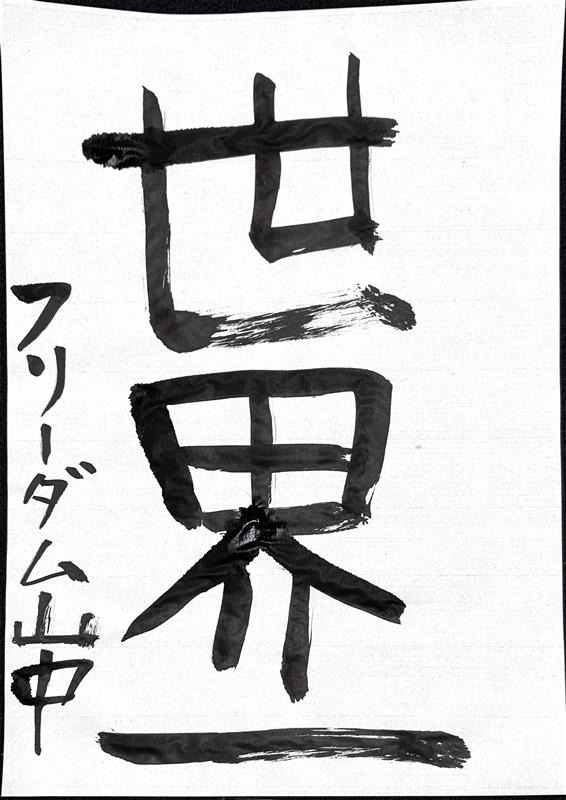 世界一
フリーダム山中